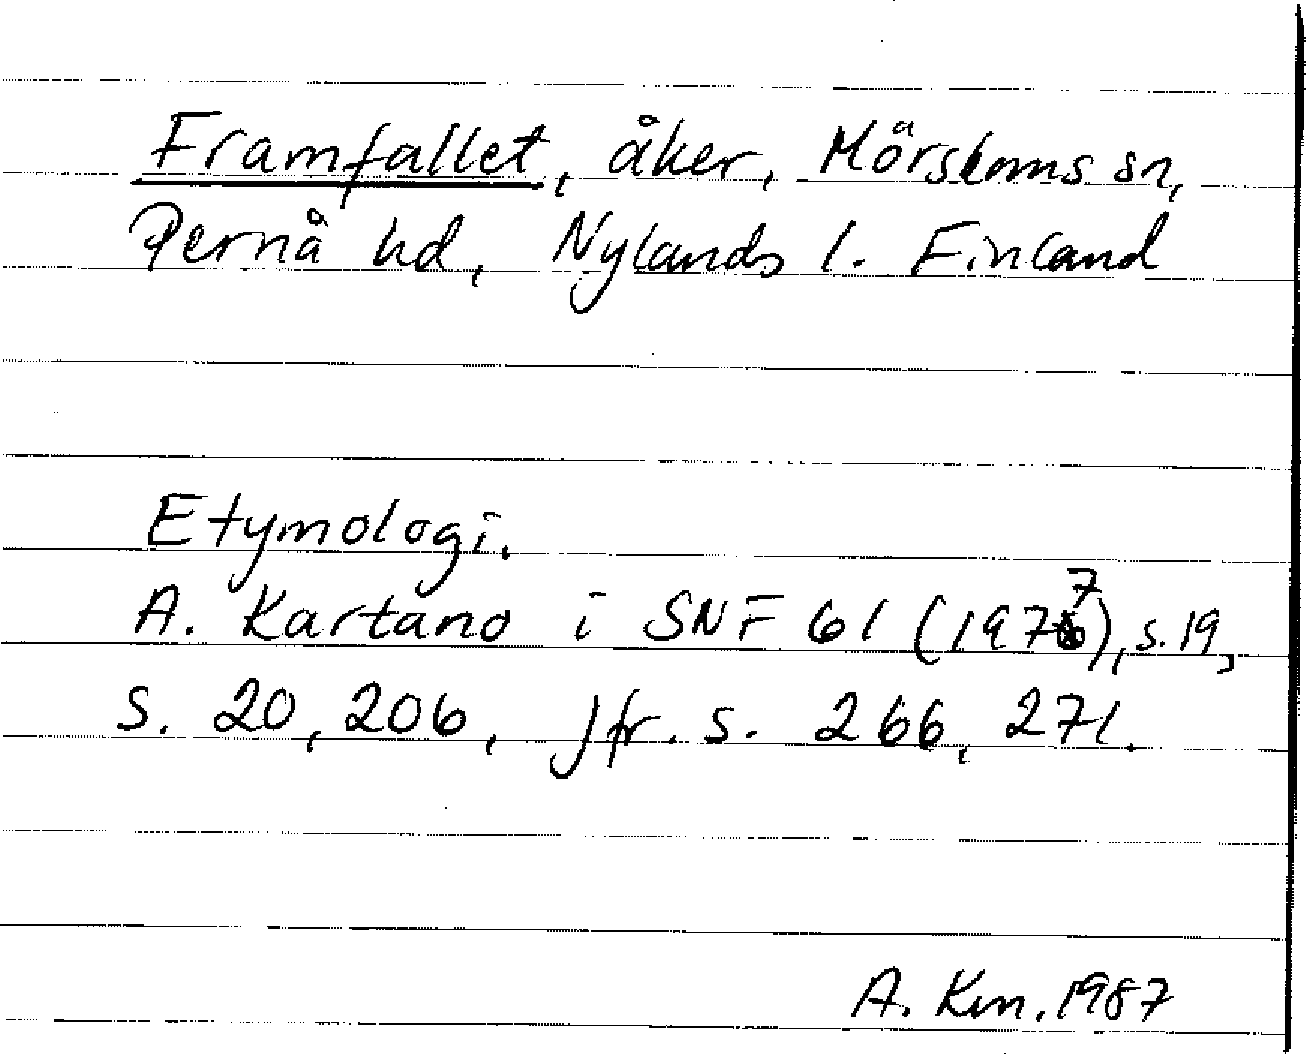 Framfallet, åker, Mörskoms sn,
Pernå hd, Nylands l. Finland
Etymologi.
A. Kartano i SNF 61 (1977), s. 19,
s. 20, 206, Jfr. s. 266, 271.
A. Km. 1987